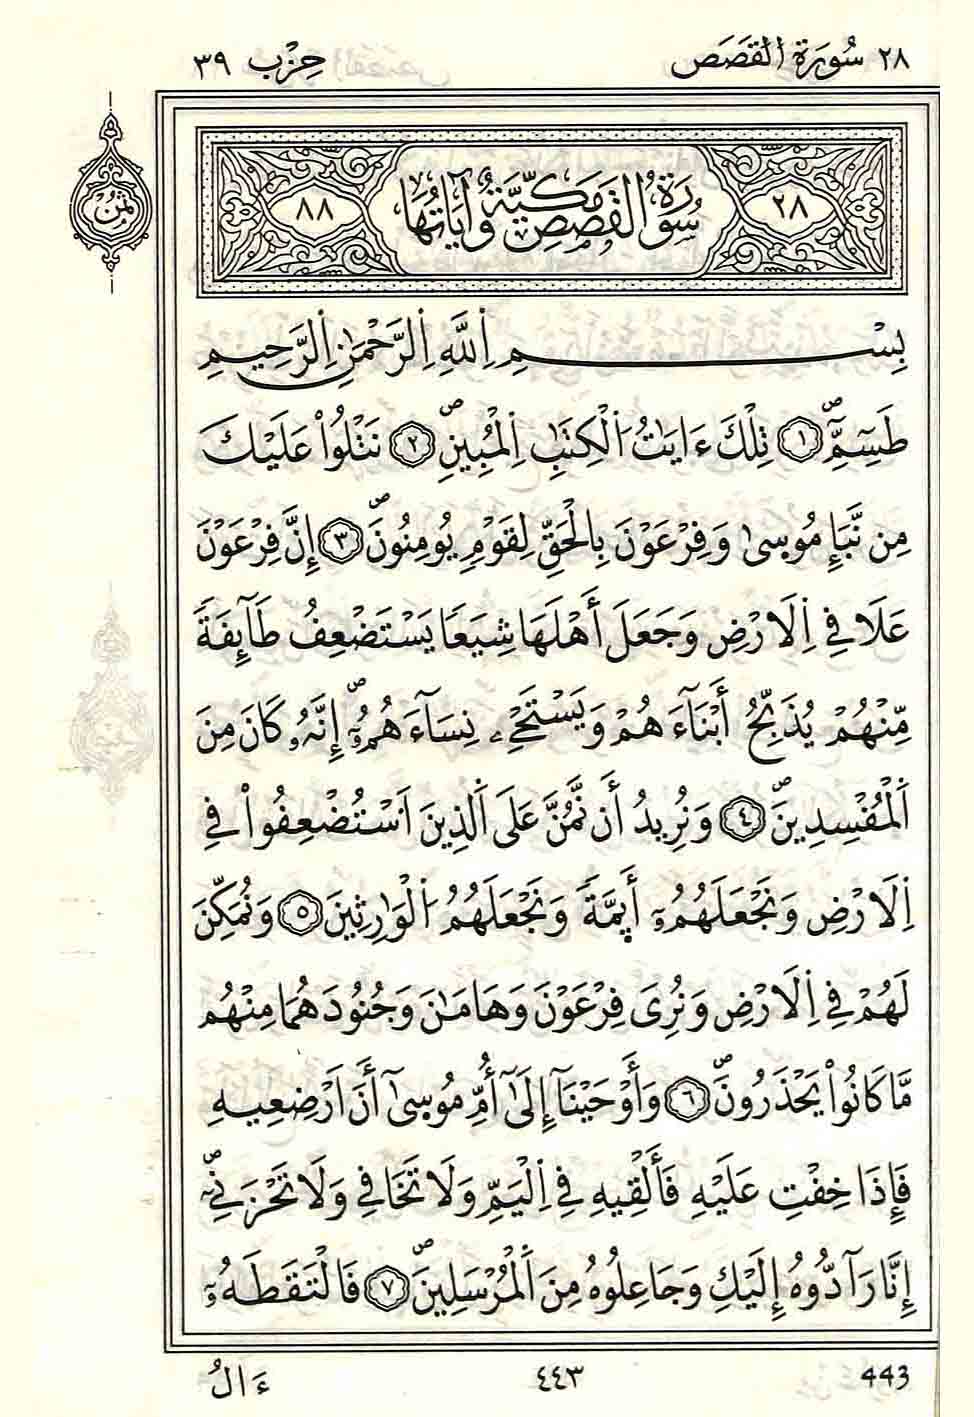 ٢٨ سُورَةُ الْقَصَصِ حِزْب ٣٩
ثُمُن
٢٨ سُورَةُ الْقَصَصِ مَكِّيَّةٌ وَآيَاتُهَا ٨٨
بِسْمِ اِ۬للَّهِ اِ۬لرَّحْمَٰنِ اِ۬لرَّحِيمِ
طَسِٓمِّٓۖ ١ تِلْكَ ءَايَٰتُ اُ۬لْكِتَٰبِ اِ۬لْمُبِينِۖ ٢ نَتْلُواْ عَلَيْكَ
مِن نَّبَإِ مُوس۪ىٰ وَفِرْعَوْنَ بِالْحَقِّ لِقَوْمٖ يُومِنُونَۖ ٣ إِنَّ فِرْعَوْنَ
عَلَا فِے اِ۬لَارْضِ وَجَعَلَ أَهْلَهَا شِيَعاٗ يَسْتَضْعِفُ طَآئِفَةٗ
مِّنْهُمْ يُذَبِّحُ أَبْنَآءَهُمْ وَيَسْتَحْيِۦ نِسَآءَهُمُۥٓۖ إِنَّهُۥ كَانَ مِنَ
اَ۬لْمُفْسِدِينَۖ ٤ وَنُرِيدُ أَن نَّمُنَّ عَلَى اَ۬لذِينَ اَ۟سْتُضْعِفُواْ فِے
اِ۬لَارْضِ وَنَجْعَلَهُمُۥٓ أَئِمَّةٗ وَنَجْعَلَهُمُ اُ۬لْوَٰرِثِينَ ٥ وَنُمَكِّنَ
لَهُمْ فِے اِ۬لَارْضِ وَنُرِيَ فِرْعَوْنَ وَهَامَٰنَ وَجُنُودَهُمَا مِنْهُم
مَّا كَانُواْ يَحْذَرُونَۖ ٦ وَأَوْحَيْنَآ إِلَىٰٓ أُمِّ مُوس۪ىٰٓ أَنَ اَرْضِعِيهِ
فَإِذَا خِفْتِ عَلَيْهِ فَأَلْقِيهِ فِے اِ۬لْيَمِّ وَلَا تَخَافِے وَلَا تَحْزَنِےٓۖ
إِنَّا رَآدُّوهُ إِلَيْكِ وَجَاعِلُوهُ مِنَ اَ۬لْمُرْسَلِينَۖ ٧ فَالْتَقَطَهُۥٓ
443 ٤٤٣ ءَالُ